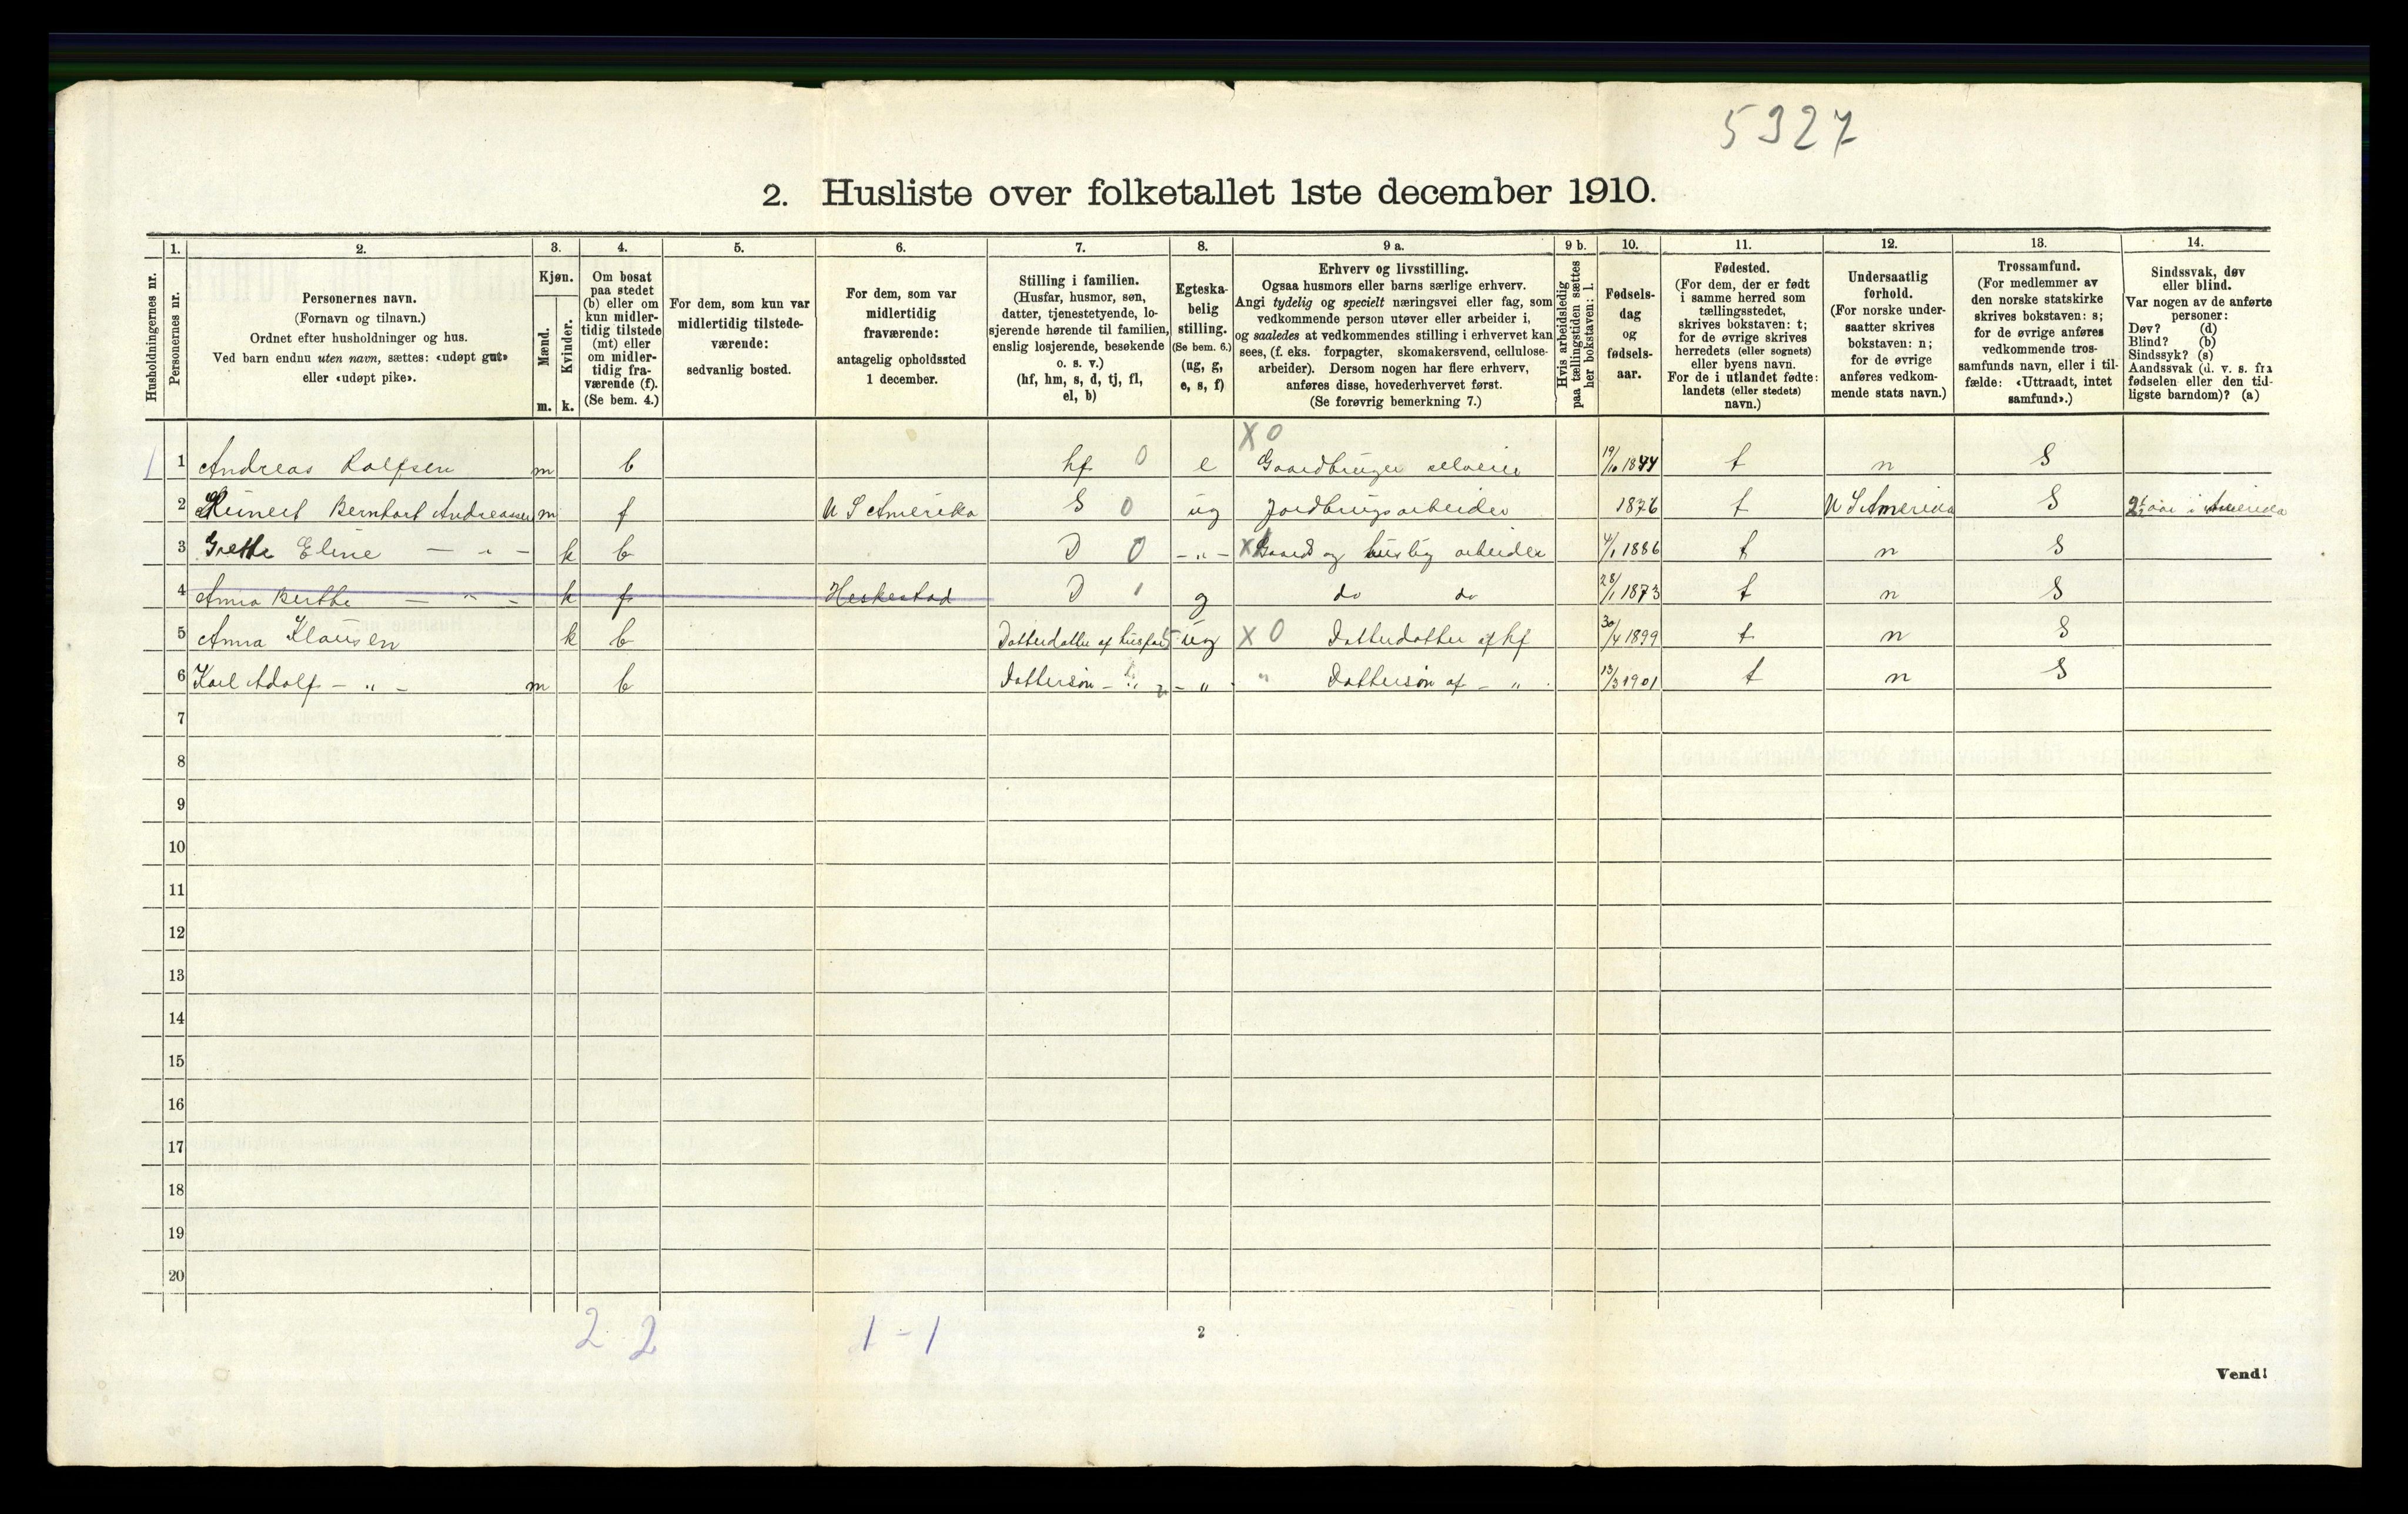 5327
2. Husliste over folketallet 1ste december 1910.
Husholdningernes nr.
1.
Personernes nr.
2.
Personernes navn.
(Fornavn og tilnavn.)
Ordnet efter husholdninger og hus.
Ved barn endnu uten navn, sættes: «udøpt gut»
eller «udøpt pike».
3.
Kjøn.
Mænd.
m.
Kvinder.
k.
4.
Om bosat
paa stedet
(b) eller om
kun midler-
tidig tilstede
(mt) eller
om midler-
tidig fra-
værende (f).
(Se bem. 4.)
5.
For dem, som kun var
midlertidig tilstede-
værende:
sedvanlig bosted.
6.
For dem, som var
midlertidig
fraværende:
antagelig opholdssted
1 december.
7.
Stilling i familien.
(Husfar, husmor, søn,
datter, tjenestetyende, lo-
sjerende hørende til familien,
enslig losjerende, besøkende
o. s. v.)
(hf, hm, s, d, tj, fl,
el, b)
8.
Egteska-
belig
stilling.
(Se bem. 6.)
(ug, g,
e, s, f)
9 a.
Erhverv og livsstilling.
Ogsaa husmors eller barns særlige erhverv.
Angi tydelig og specielt næringsvei eller fag, som
vedkommende person utøver eller arbeider i,
og saaledes at vedkommendes stilling i erhvervet kan
sees, (f. eks. forpagter, skomakersvend, cellulose-
arbeider). Dersom nogen har flere erhverv,
anføres disse, hovederhvervet først.
(Se forøvrig bemerkning 7.)
9 b.
Hvis arbeidsledig
paa tællingstiden sættes
her bokstaven: l.
10.
Fødsels-
dag
og
fødsels-
aar.
11.
Fødested.
(For dem, der er født
i samme herred som
tællingsstedet,
skrives bokstaven: t;
for de øvrige skrives
herredets (eller sognets)
eller byens navn.
For de i utlandet fødte:
landets (eller stedets)
navn.)
12.
Undersaatlig
forhold.
(For norske under-
saatter skrives
bokstaven: n;
for de øvrige
anføres vedkom-
mende stats navn.)
13.
Trossamfund.
(For medlemmer av
den norske statskirke
skrives bokstaven: s;
for de øvrige anføres
vedkommende tros-
samfunds navn, eller i til-
fælde: «Uttraadt, intet
samfund».)
14.
Sindssvak, døv
eller blind.
Var nogen av de anførte
personer:
Døv? (d)
Blind? (b)
Sindssyk? (s)
Aandssvak (d. v. s. fra
fødselen eller den tid-
ligste barndom)? (a)
X 0
1 1 Andreas Rolfsen m b hf 0 e Gaardbruger selveier 19/10 1844 t n S
2 Reinert Bernhart Andreassen m f U S Amerika S 0 ug Jordbrugsarbeider 1876 t U S Amerika S aar i Amerika
3 Grethe Eline — „ — k b D 0 - „ - X Gaards og huslig arbeider 4/1 1886 t n S
4 Anna Berthe — „ - k f Heskestad D 1 g do do 28/1 1873 t n S
5 Anna Klausen k b Datterdatter af husfar ug X 0 Datterdatter af hf 30/4 1899 t n S
6 Karl Adolf - „ - m b Dattersøn - „ - „ „ Dattersøn af - „ 13/3 1901 t n S
7
8
9
10
11
12
13
14
15
16
17
18
19
20
2 2 1 - 1
2
Vend!